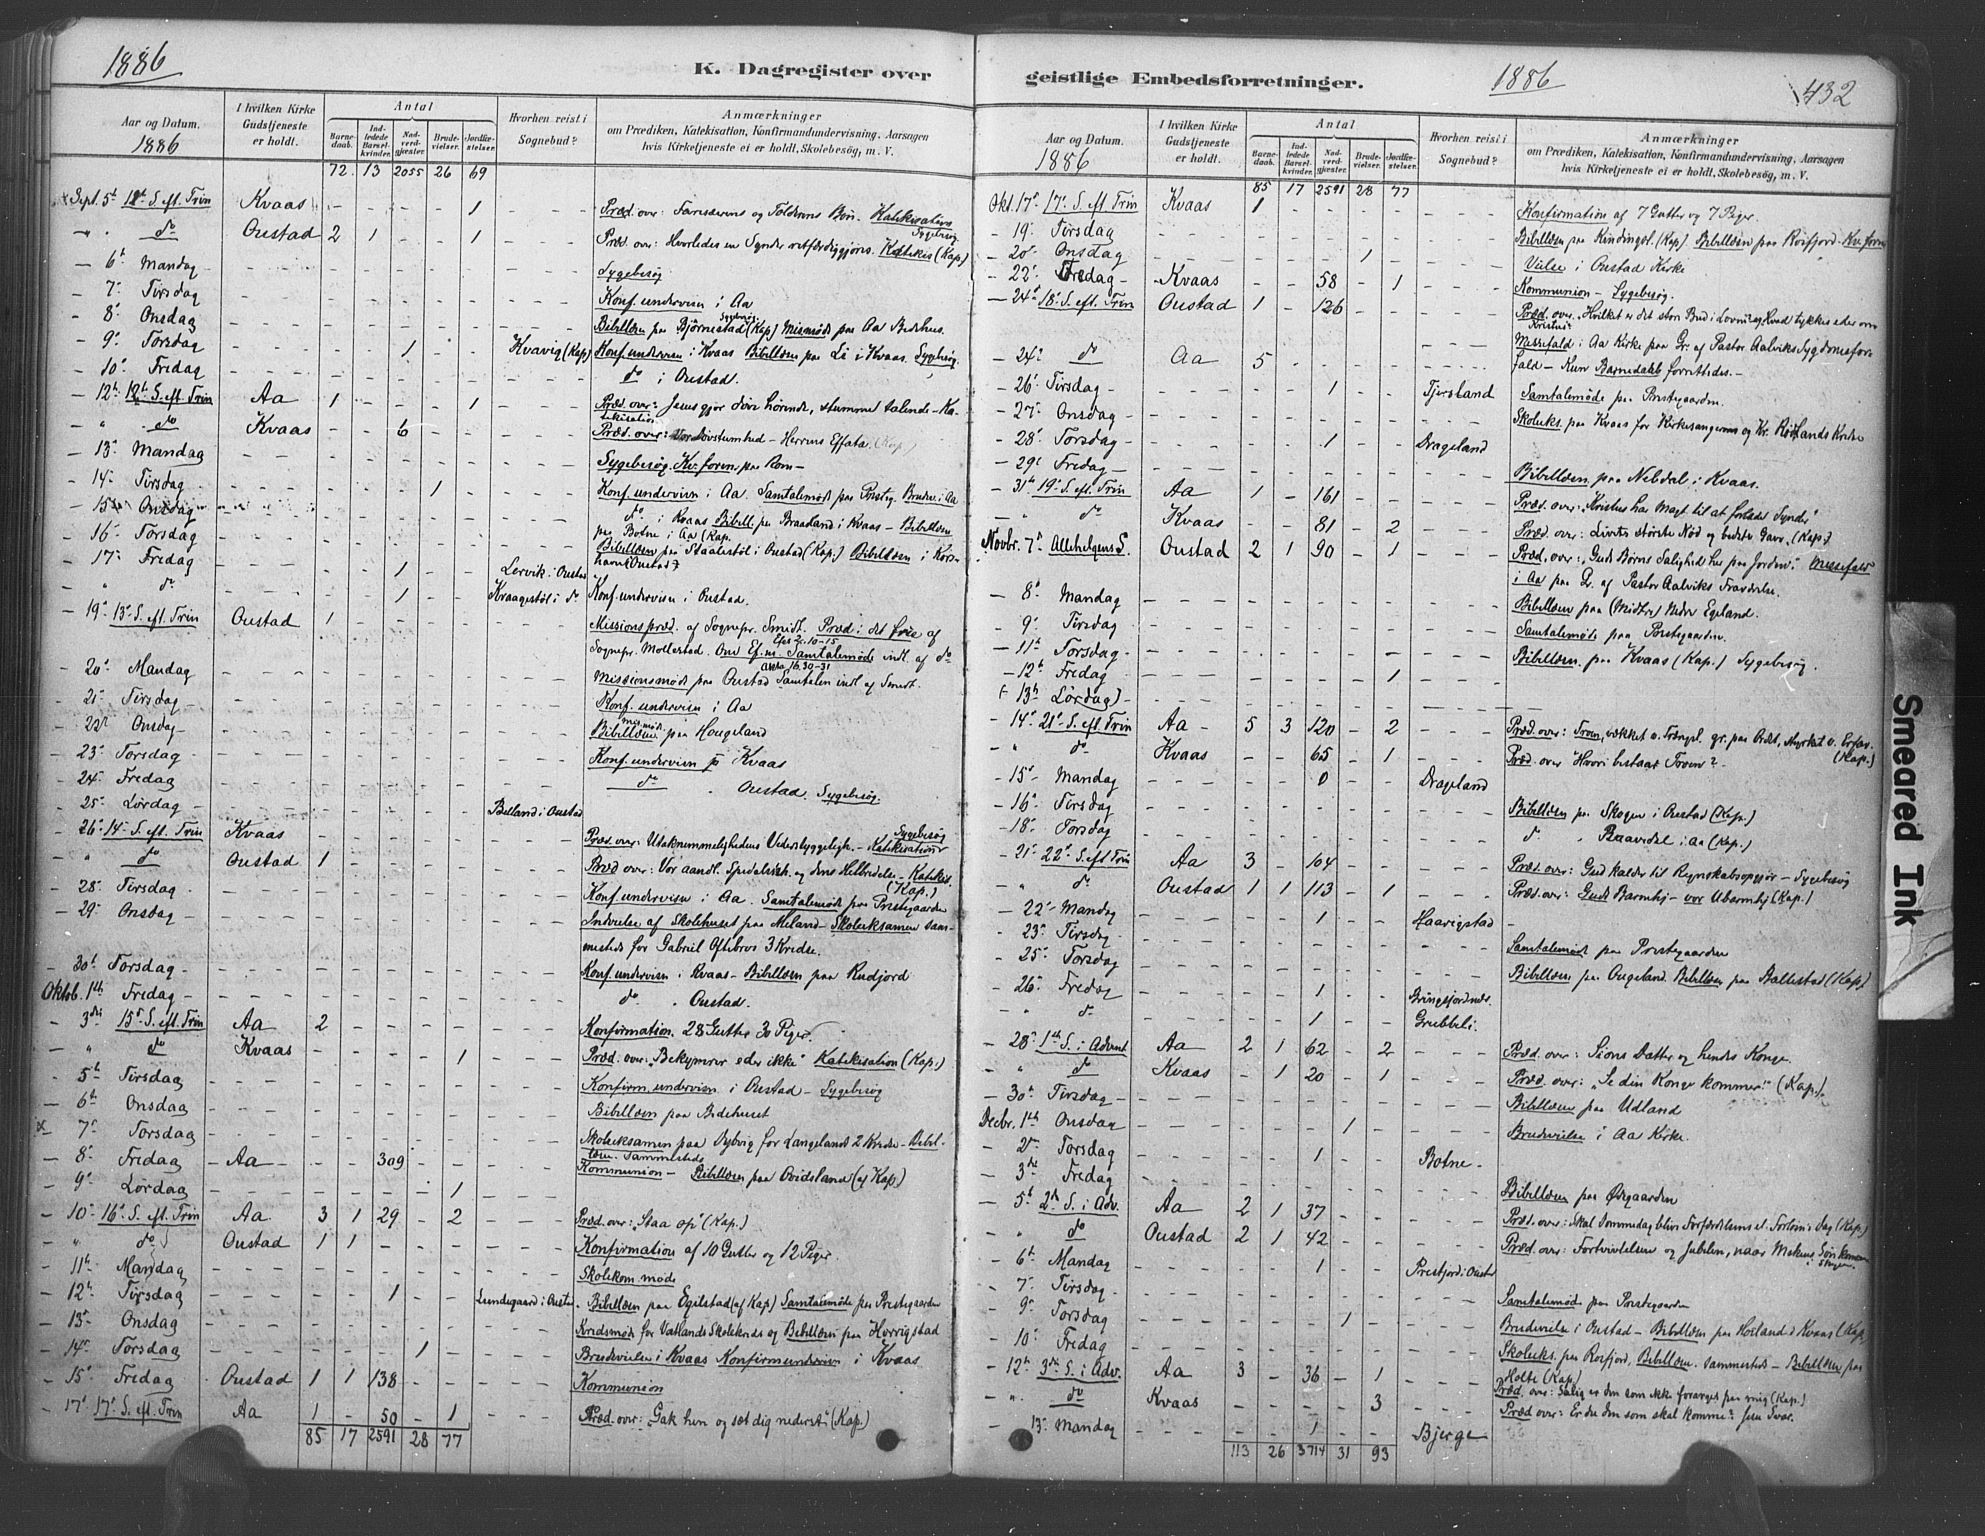 1886
K. Dagregister over
Aar og Datum.
1886
I hvilken Kirke
Gudstjeneste
er holdt.
Antal
Barne-
daab.
Ind-
ledede
Barsel-
kvinder.
Nad-
verd-
gjæster.
Brude-
vielser.
Jordfæ-
stelser.
Hvorhen reist i
Sognebud?
Anmærkninger
om Prædiken, Katekisation, Konfirmandundervisning, Aarsagen
hvis Kirketjeneste ei er holdt, Skolebesøg, m. V.
72 13 2055 26 69
Sept. 5t S. eft. Trin Kvaas - - - - 1 - - - Præd. over: Farisæerens og Tolderens Bøn. Katekisation
Sygebesøg
" do Oustad 2 1 - - 1 - - - Præd. over: Hvorledes en Synder retfærdiggjøres. Katekis (Kap)
- 6t Mandag Sygebesøg
- 7 Tirsdag Konf. undervisn i Aa
- 8 Onsdag Bibellæsn paa Bjørnestad (Kap) Mismøde paa Aa Bedehus.
- 9 Torsdag - - 1 - - Kvavig (Kap) Konf. undervisn i Kvaas Bibellæsn paa Li i Kvaas. Sygebesøg
- 10 Fredag do i Oustad.
- 12t S. eft. Trin Aa 1 - - - 1 Præd. over: Jesus gjør døve hørende, stumme talende - Ka-
tekisation
- " do Kvaas - - 6 - - Præd. over: Vor Døvstumhed - Herrens Effata (Kap)
- 13 Mandag Sygebesøg. Kv. foren. paa Rom -
- 14 Tirsdag - - - 1 - Konf. undervisn i Aa. Samtalemøde paa Prstg. Brudev. i Aa
- 15 Onsdag do i Kvaas Bibell. paa Braadland i Kvaas - Bibellæsn
paa Botne i Aa (Kap.
- 16 Torsdag Bibellæsn paa i Oustad (Kap.) Bibellæsn i Kors-
havn (Oustad)
- 17 Fredag - - 1 - - Lervik i Oustad
- " do - - 1 - - i do Konf. undervisn i Oustad.
- 19 13 S. eft. Trin Oustad 1 - - - - Missionspræd. af Sognepr. Smidt. Præd. i det frie af
Sognepr. Mollestad. Om Ef.m. Samtalemøde indl. af do
Efes 2. 10-15
- 20 Mandag Missionsmøde paa Oustad Samtalen indl. af Smidt.
16. 30-31
- 21 Tirsdag Konf. undervisn i Aa
- 22 Onsdag Bibellæsn paa Hougeland
- 23 Torsdag Konf. undervisn i Kvaas
- 24 Fredag do " Oustad. Sygebesøg.
- 25 Lørdag - Billand i Oustad
- 26 14 S. eft. Trin Kvaas - Præd. over: Utaknemmelighedens Vederstyggeligh. - Katekisation
Sygebesøg
- " do Oustad 1 - - - - Præd over: Vor aandl. Spedalskh. og dens Helbredelse - Katekis.
(Kap.)
- 28 Tirsdag Konf. undervisn i Aa. Samtalemøde paa Prestegaarden
- 29 Onsdag Indvielse af Skolehuset paa Meland - Skoleeksamen sam-
mesteds for Gabriel Oftebros 3 Kredse.
- 30t Torsdag - Konf. undervisn i Kvaas - Bibellæsn paa Rudjord
Oktob. 1ste Fredag - do " Oustad.
- 3die 15 S. eft. Trin Aa 2 - - - - Konfirmation. 28 Gutter 30 Piger
- " do Kvaas - - - - 1 Præd. over: "Bekymrer eder ikke" Katekisation (Kap.)
- 5t Tirsdag Konfirm. undervisn i Oustad - Sygebesøg
- 6t Onsdag Bibellæsn paa Bedehuset
- 7 Torsdag Skoleeksamen paa for Langelands 2 Kredse - Bibel-
læsn. sammesteds
- 8 Fredag - Aa - - 309 - - Kommunion - Bibellæsn paa Ovidsland (af Kap)
- 9 Lørdag - - - 1 -
- 10 16 S. eft. Trin Aa 3 1 29 - 2 Præd. over: "Staa op" (Kap.)
- " do Oustad 1 1 - - - Konfirmation af 10 Gutter og 12 Piger
- 11t Mandag Skolekom. møde
- 12t Tirsdag - - 1 - - Lundegaard i Oustad. Bibellæsn paa Egilstad (af Kap) Samtalemøde paa Prestegaarden
- 13 Onsdag Kredsmøde for Vatlands Skolekreds og Bibellæsn paa Hærrigstad
- 14 Torsdag - - - 1 - Brudevielse i Kvaas Konfirmundervisn i Kvaas
- 15 Fredag Oustad 1 1 138 - - Kommunion
- 17 17 S. eft. Trin Aa 1 - 50 - 1 Præd. over: "Gak hen og sæt dig nederst" (Kap.)
85 17 2591 28 77
geistlige Embedsforretninger.
1886
432
Aar og Datum.
1886
I hvilken Kirke
Gudstjeneste
er holdt.
Antal
Barne-
daab.
Ind-
ledede
Barsel-
kvinder.
Nad-
verd-
gjæster.
Brude-
vielser.
Jordfæ-
stelser.
Hvorhen reist i
Sognebud?
Anmærkninger
om Prædiken, Katekisation, Konfirmandundervisning, Aarsagen
hvis Kirketjeneste ei er holdt, Skolebesøg, m. V.
85 17 2591 28 77
Okt. 17 17 S. eft. Trin Kvaas 1 - - - - Konfirmation af 7 Gutter og 7 Piger.
- 19 Tirsdag Bibellæsn paa (Kap) Bibellæsn paa Rosfjord - Kv. foren
- 20 Onsdag - - - 1 - Vielse i Oustad Kirke
- 22 Fredag - Kvaas - - 58 - 1 Kommunion - Sygebesøg.
- 24 18 S. eft. Trin Oustad 1 - 126 - - Præd. over: "Hvilket er det store Bud i Loven og Hvad tykkes eder om
Kristus
- 24 do Aa 5 Messefald i Aa Kirke paa Gr. af Pastor Aalviks Sygdomsfor-
fald - Kun Barnedaab forrettedes. -
- 26 Tirsdag - - - 1 - - Tjersland Samtalemøde paa Prestegaarden.
- 27 Onsdag Skoleeks. paa Kvaas for Kirkesangerens og Kr. Røtlands Kredse
- 28 Torsdag - - 1 - - Drageland
- 29 Fredag - Bibellæsn. paa Nebdal i Kvaas.
- 31t 19 S. eft. Trin Aa 1 - 161 - - Præd. over: "Kristus har Magt til at forlade Synder"
- " do Kvaas - - 81 - 2 Præd. over: Livets største Nød og bedste Gave. (Kap.)
Novbr. 7 Allehelgens S. Oustad 2 1 90 - 1 Præd. over: "Guds Børns Salighed her paa Jorden". Messefald
i Aa paa Gr. af Pastor Aalviks Fraværelse.
- 8 Mandag Bibellæsn paa (Midtre) Nedre Egeland.
- 9 Tirsdag Samtalemøde paa Prestegaarden.
- 11t Torsdag - Bibellæsn. paa Kvaas (Kap.) Sygebesøg.
- 12t Fredag - - - - 1
(- 13t Lørdag)
- 14 21 S. eft. Trin Aa 5 3 120 - 2 Præd. over: Troen, vækket v. Trængsl. gr. paa Ordet, styrket v. Erfar.
(Kap.)
- " do Kvaas - - 65 - 1 Præd. over Hvori bestaar Troen?
- 15 Mandag - - 0 - - Drageland
- 16 Tirsdag Bibellæsn paa Skogen i Oustad (Kap.)
- 18 Torsdag do " i Aa (Kap.)
- 21 22 S. eft Trin Aa 3 - 104 - - Præd. over: Gud kalder til Regnskabsopgjør - Sygebesøg
- " do Oustad 1 1 113 - 1 Præd. over: Guds Barmhj. - vor Ubarmhj (Kap.)
- 22 Mandag - - 1 - - Haarigstad
- 23 Tirsdag Samtalemøde paa Prestegaarden
- 25 Torsdag Bibellæsn paa Ougeland Bibellæsn paa Ballestad (Kap)
- 26 Fredag - - 1 - - Bringsjordnes.
- do - - 1 - - Grubbeli.
- 28 1ste S. i Advent Aa 2 1 62 - 2 Præd. over: Sions Datter og hendes Konge.
- " do Kvaas - 1 20 - 1 Præd. over: "Se din Konge kommer" (Kap.)
- 30t Tirsdag - Bibellæsn paa Udland
Decbr. 1ste Onsdag - - - 1 - Brudevielse i Aa Kirke.
- 2 Torsdag - - 1 - - Botne -
- 3die Fredag Bibellæsn paa Ødegaarden
- 5t 2d S. i Adv. Aa 2 1 37 - - Præd. over: Skal Dommedag blive Forfærdelsens el. Forløsn's Dag (Kap)
- " do Oustad 2 1 42 - - Præd. over: Fortvivlelsen og Jubelen, naar Mskens Søn kommer
i Skyen.
- 6t Mandag - - 1 - - Prestjord i Oustad
- 7 Tirsdag Samtalemøde paa Prestegaarden
- 9 Torsdag - - - 1 - Brudevielse i Oustad - Bibellæsn paa Høiland i Kvaas (Kap.
- 10 Fredag Skoleeks. paa Rosfjord, Bibellæsn. sammesteds - Bibellæsn paa
Holte (Kap.)
- 12t 3die S. i Adv. Aa 3 - 36 - 1 Præd. over: Salig er den som ikke forarges paa mig (Kap.)
- " do Kvaas - - - - 3 Præd over: Er du den som skal komme? Jesu Svar.
13 Mandag - - 1 - - Bjerge
113 26 3714 31 93
Smeared Ink